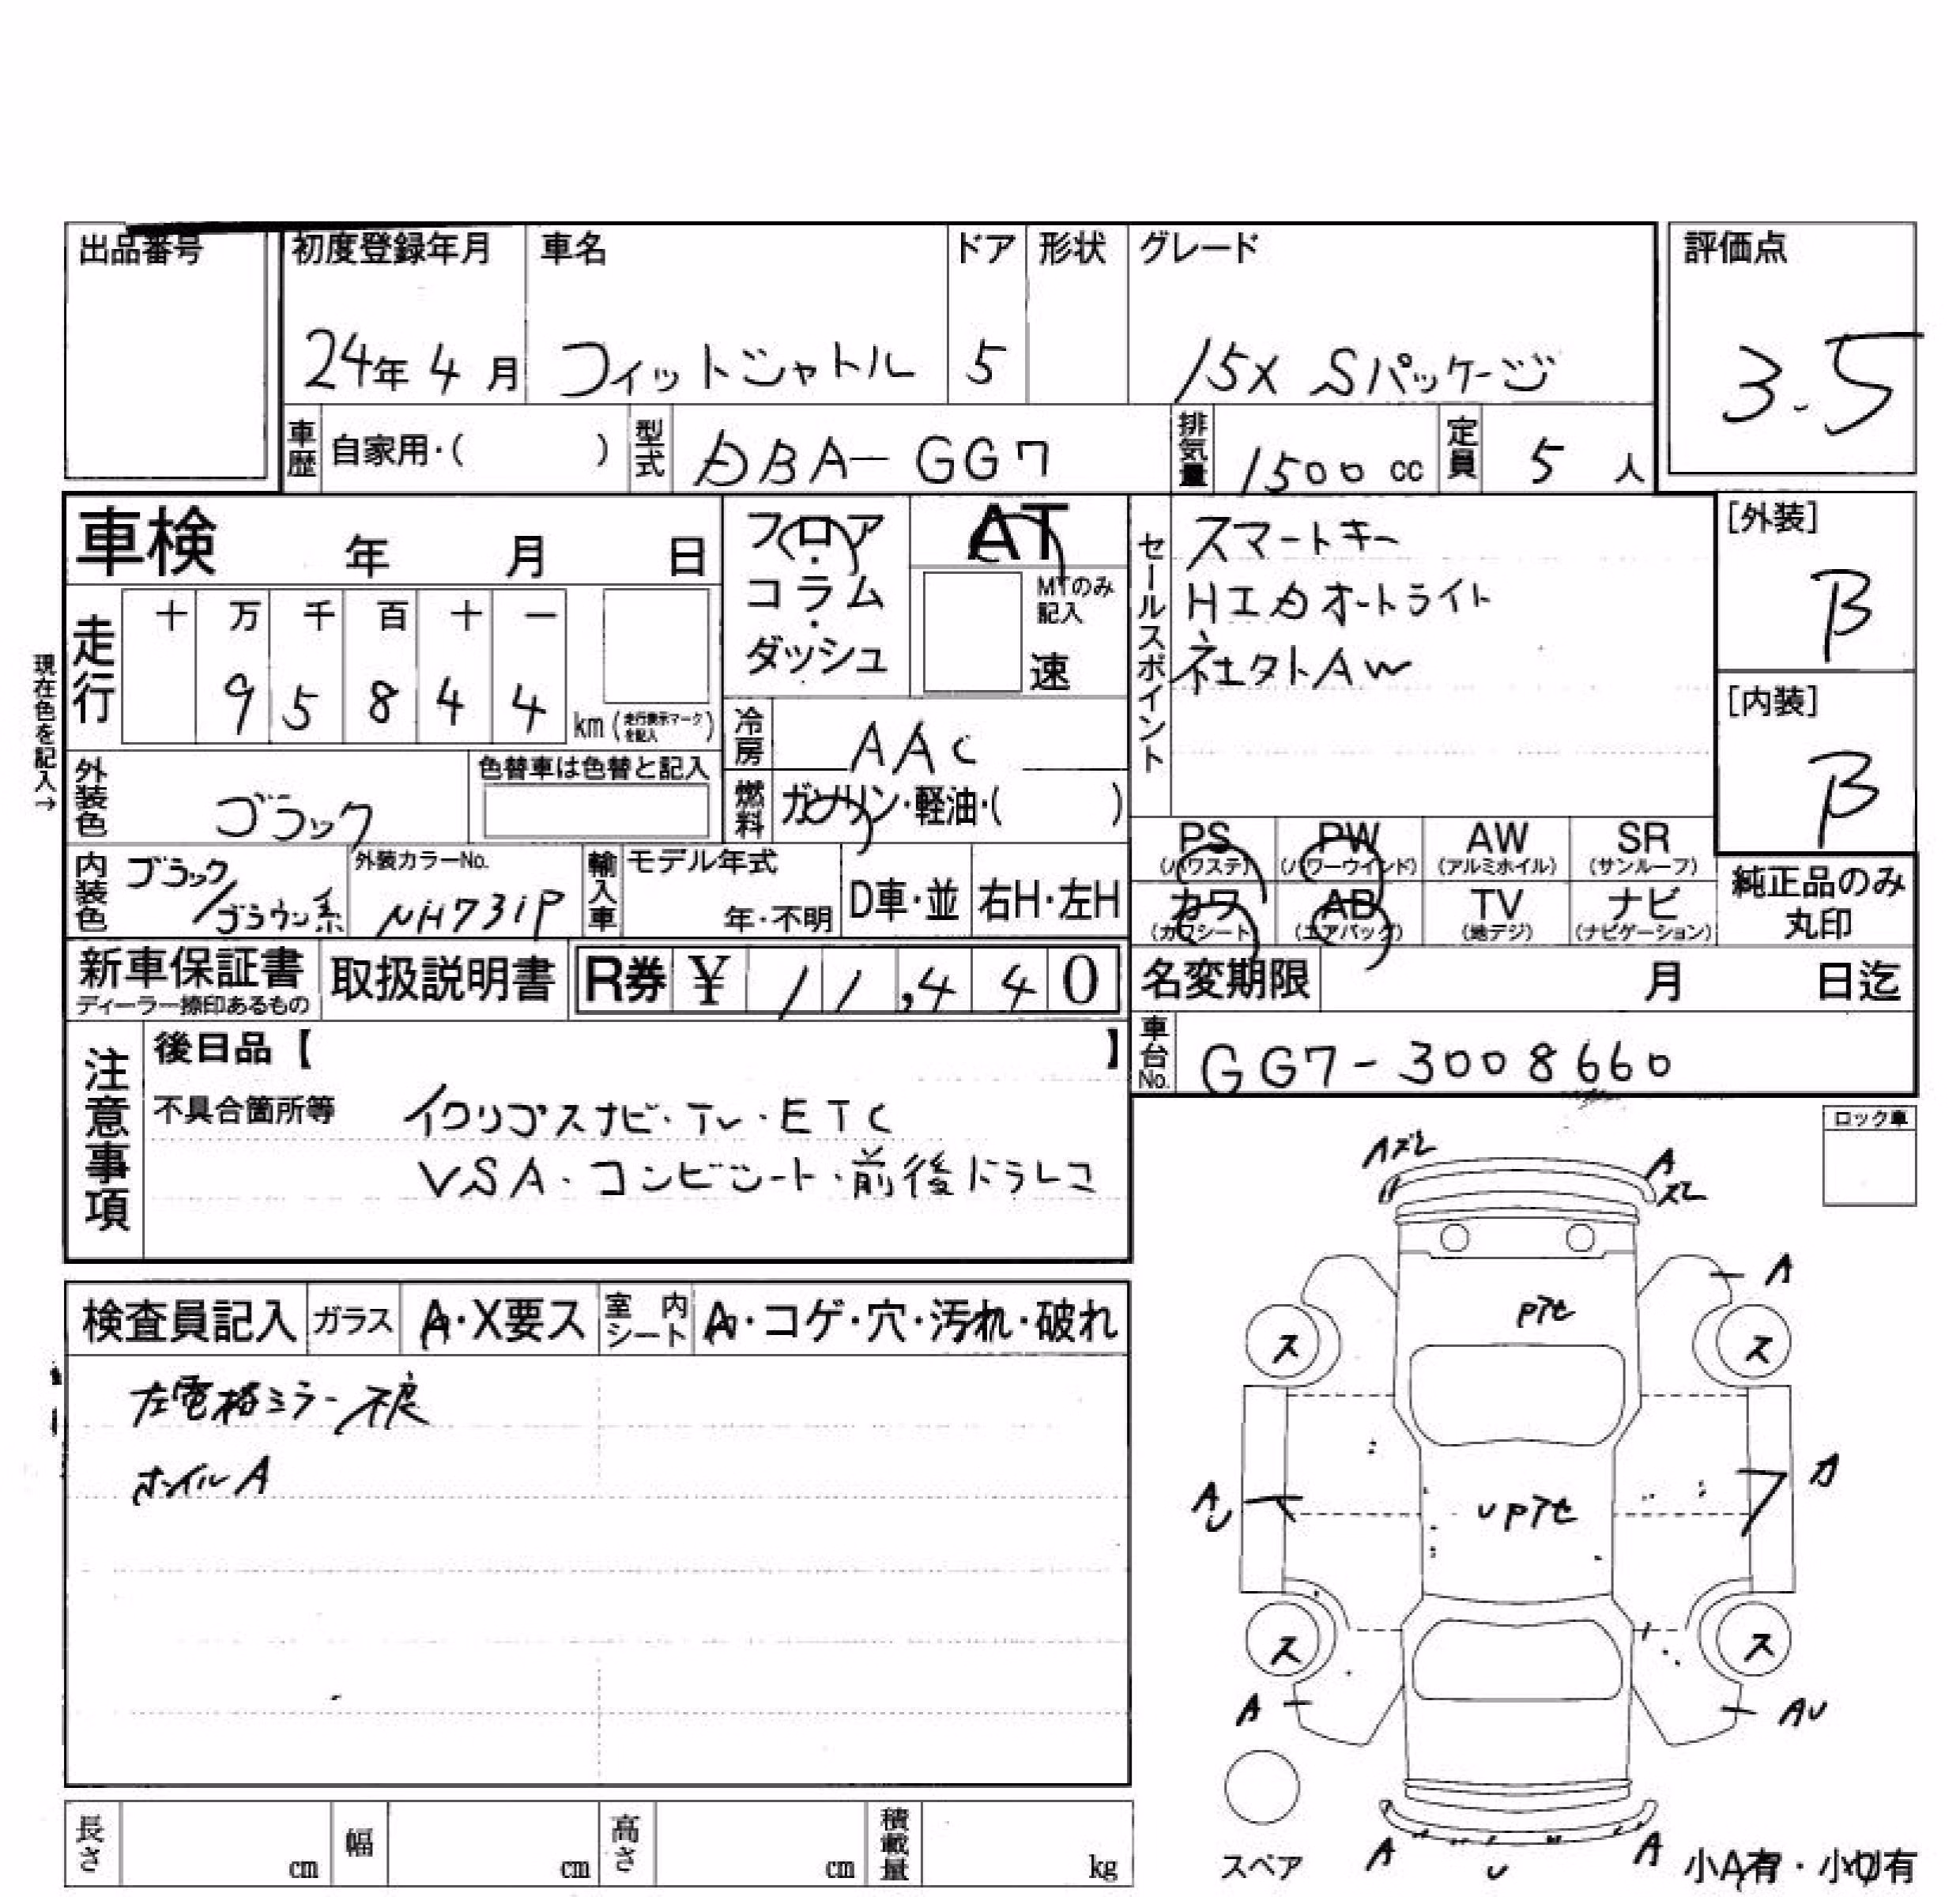 出品番号 初度登録年月 車名 ドア 形状 グレード 評価点
24年 4月 フィットシャトル 5 15X Sパッケージ 3.5
車歴 自家用・( ) 型式 DBA-GG7 排気量 1500 cc 定員 5 人
車検 年 月 日
フロア・コラム・ダッシュ
AT
MTのみ記入
速
セールスポイント
スマートキー
HIDオートライト
社外AW
[外装]
B
[内装]
B
現在色を記入→
走行 十 万 千 百 十 一
9 5 8 4 4 km (走行表示マークを記入)
冷房 AAC
外装色 ブラック 色替車は色替と記入
燃料 ガソリン・軽油・( )
PS (パワステ) PW (パワーウインド) AW (アルミホイル) SR (サンルーフ)
カワ (カワシート) AB (エアバッグ) TV (地デジ) ナビ (ナビゲーション)
純正品のみ丸印
内装色 ブラック/ブラウン系 外装カラーNo. NH731P 輸入車 モデル年式 年・不明 D車・並 右H・左H
新車保証書 ディーラー捺印あるもの 取扱説明書 R券 ¥ 11,440
名変期限 月 日迄
車台No. GG7-3008660
注意事項
後日品【 】
不具合箇所等 イクリプスナビ・TV・ETC
VSA・コンビシート・前後ドラレコ
ロック車
検査員記入 ガラス A・X要ス 室内シート A・コゲ・穴・汚れ・破れ
左電格ミラー不良
ホイルA
Aズレ
A
ズレ
A
Pアセ
ス ス
A
U
A
UPアセ
ス ス
A AU
スペア
A U A
小A有・小U有
長さ cm 幅 cm 高さ cm 積載量 kg